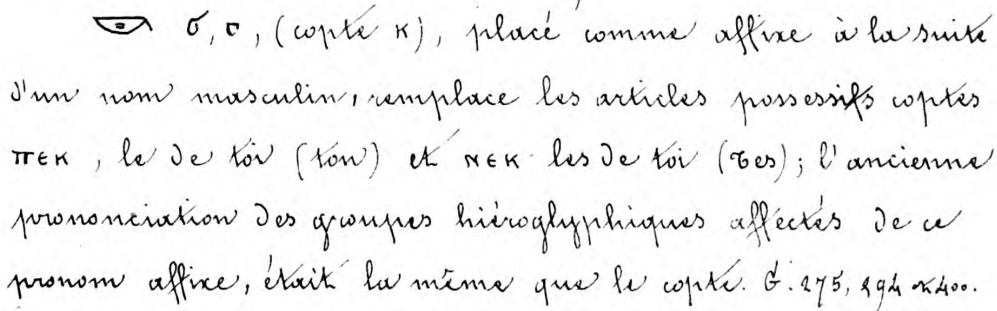 𓎡 ϭ, ⲥ, (copte ⲕ), placé comme affixe à la suite
d'un nom masculin, remplace les articles possessifs coptes
ⲡⲉⲕ, le de toi (ton) et ⲛⲉⲕ les de toi (tes); l'ancienne
prononciation des groupes hiéroglyphiques affectés de ce
pronom affixe, était la même que le copte. G. 275, 294 et 400.